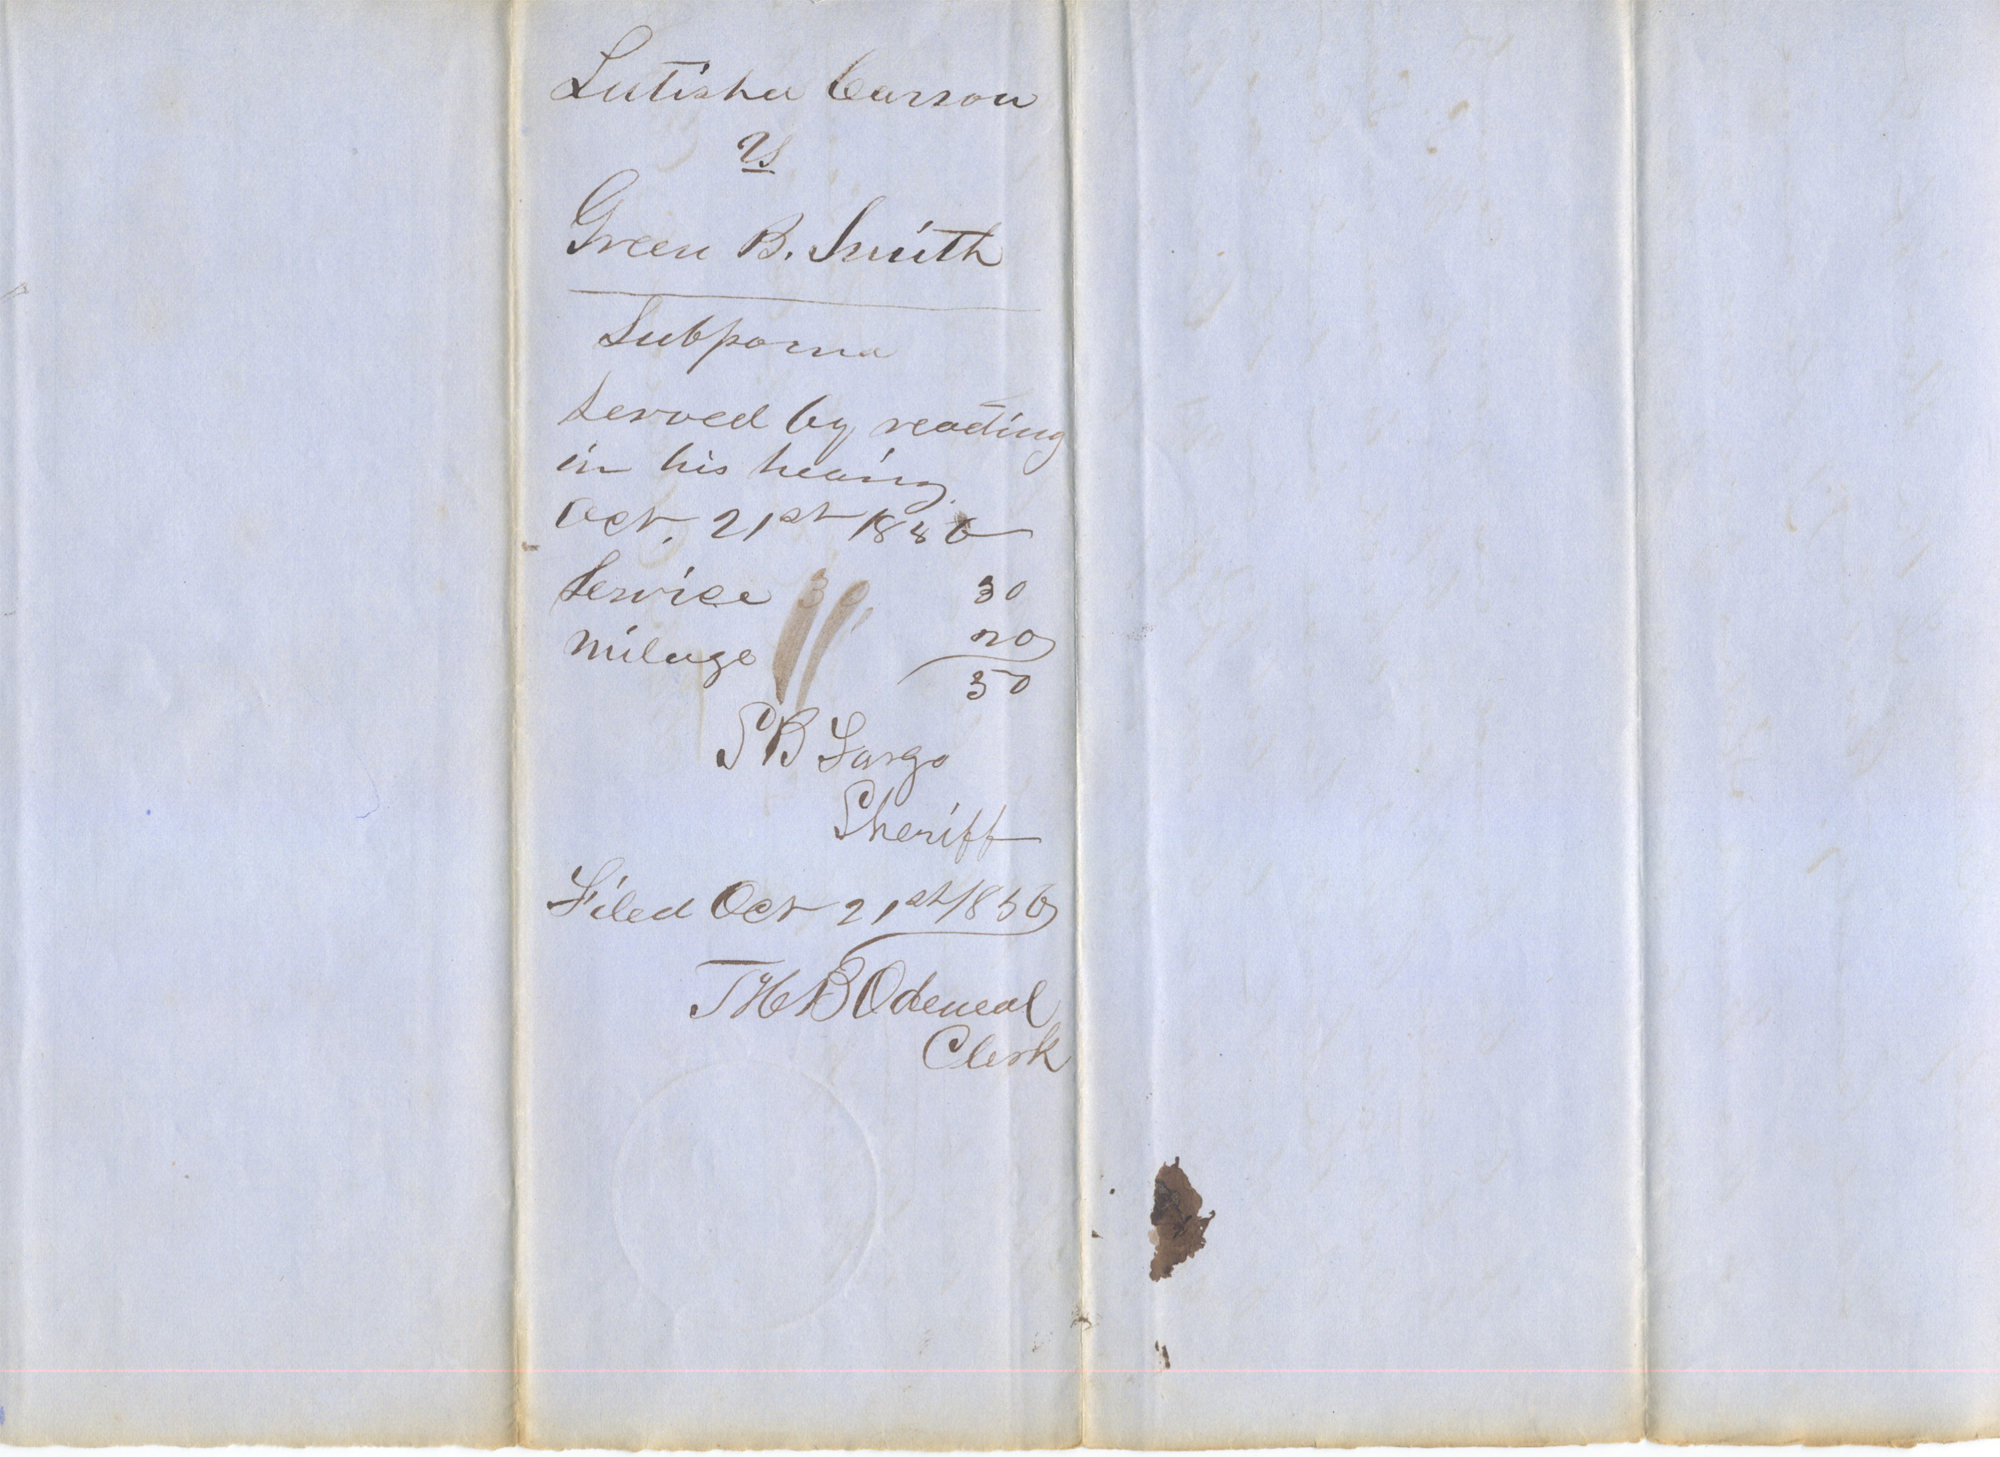 Lutisha Carson
vs
Green B. Smith
Subpoena
Served by reading
in his heaing.
Oct. 21st 1856
Service 30 30
Milage 20
50
S B Fargo
Sheriff
Filed Oct 21st 1856
T H B Odeneal
Clerk